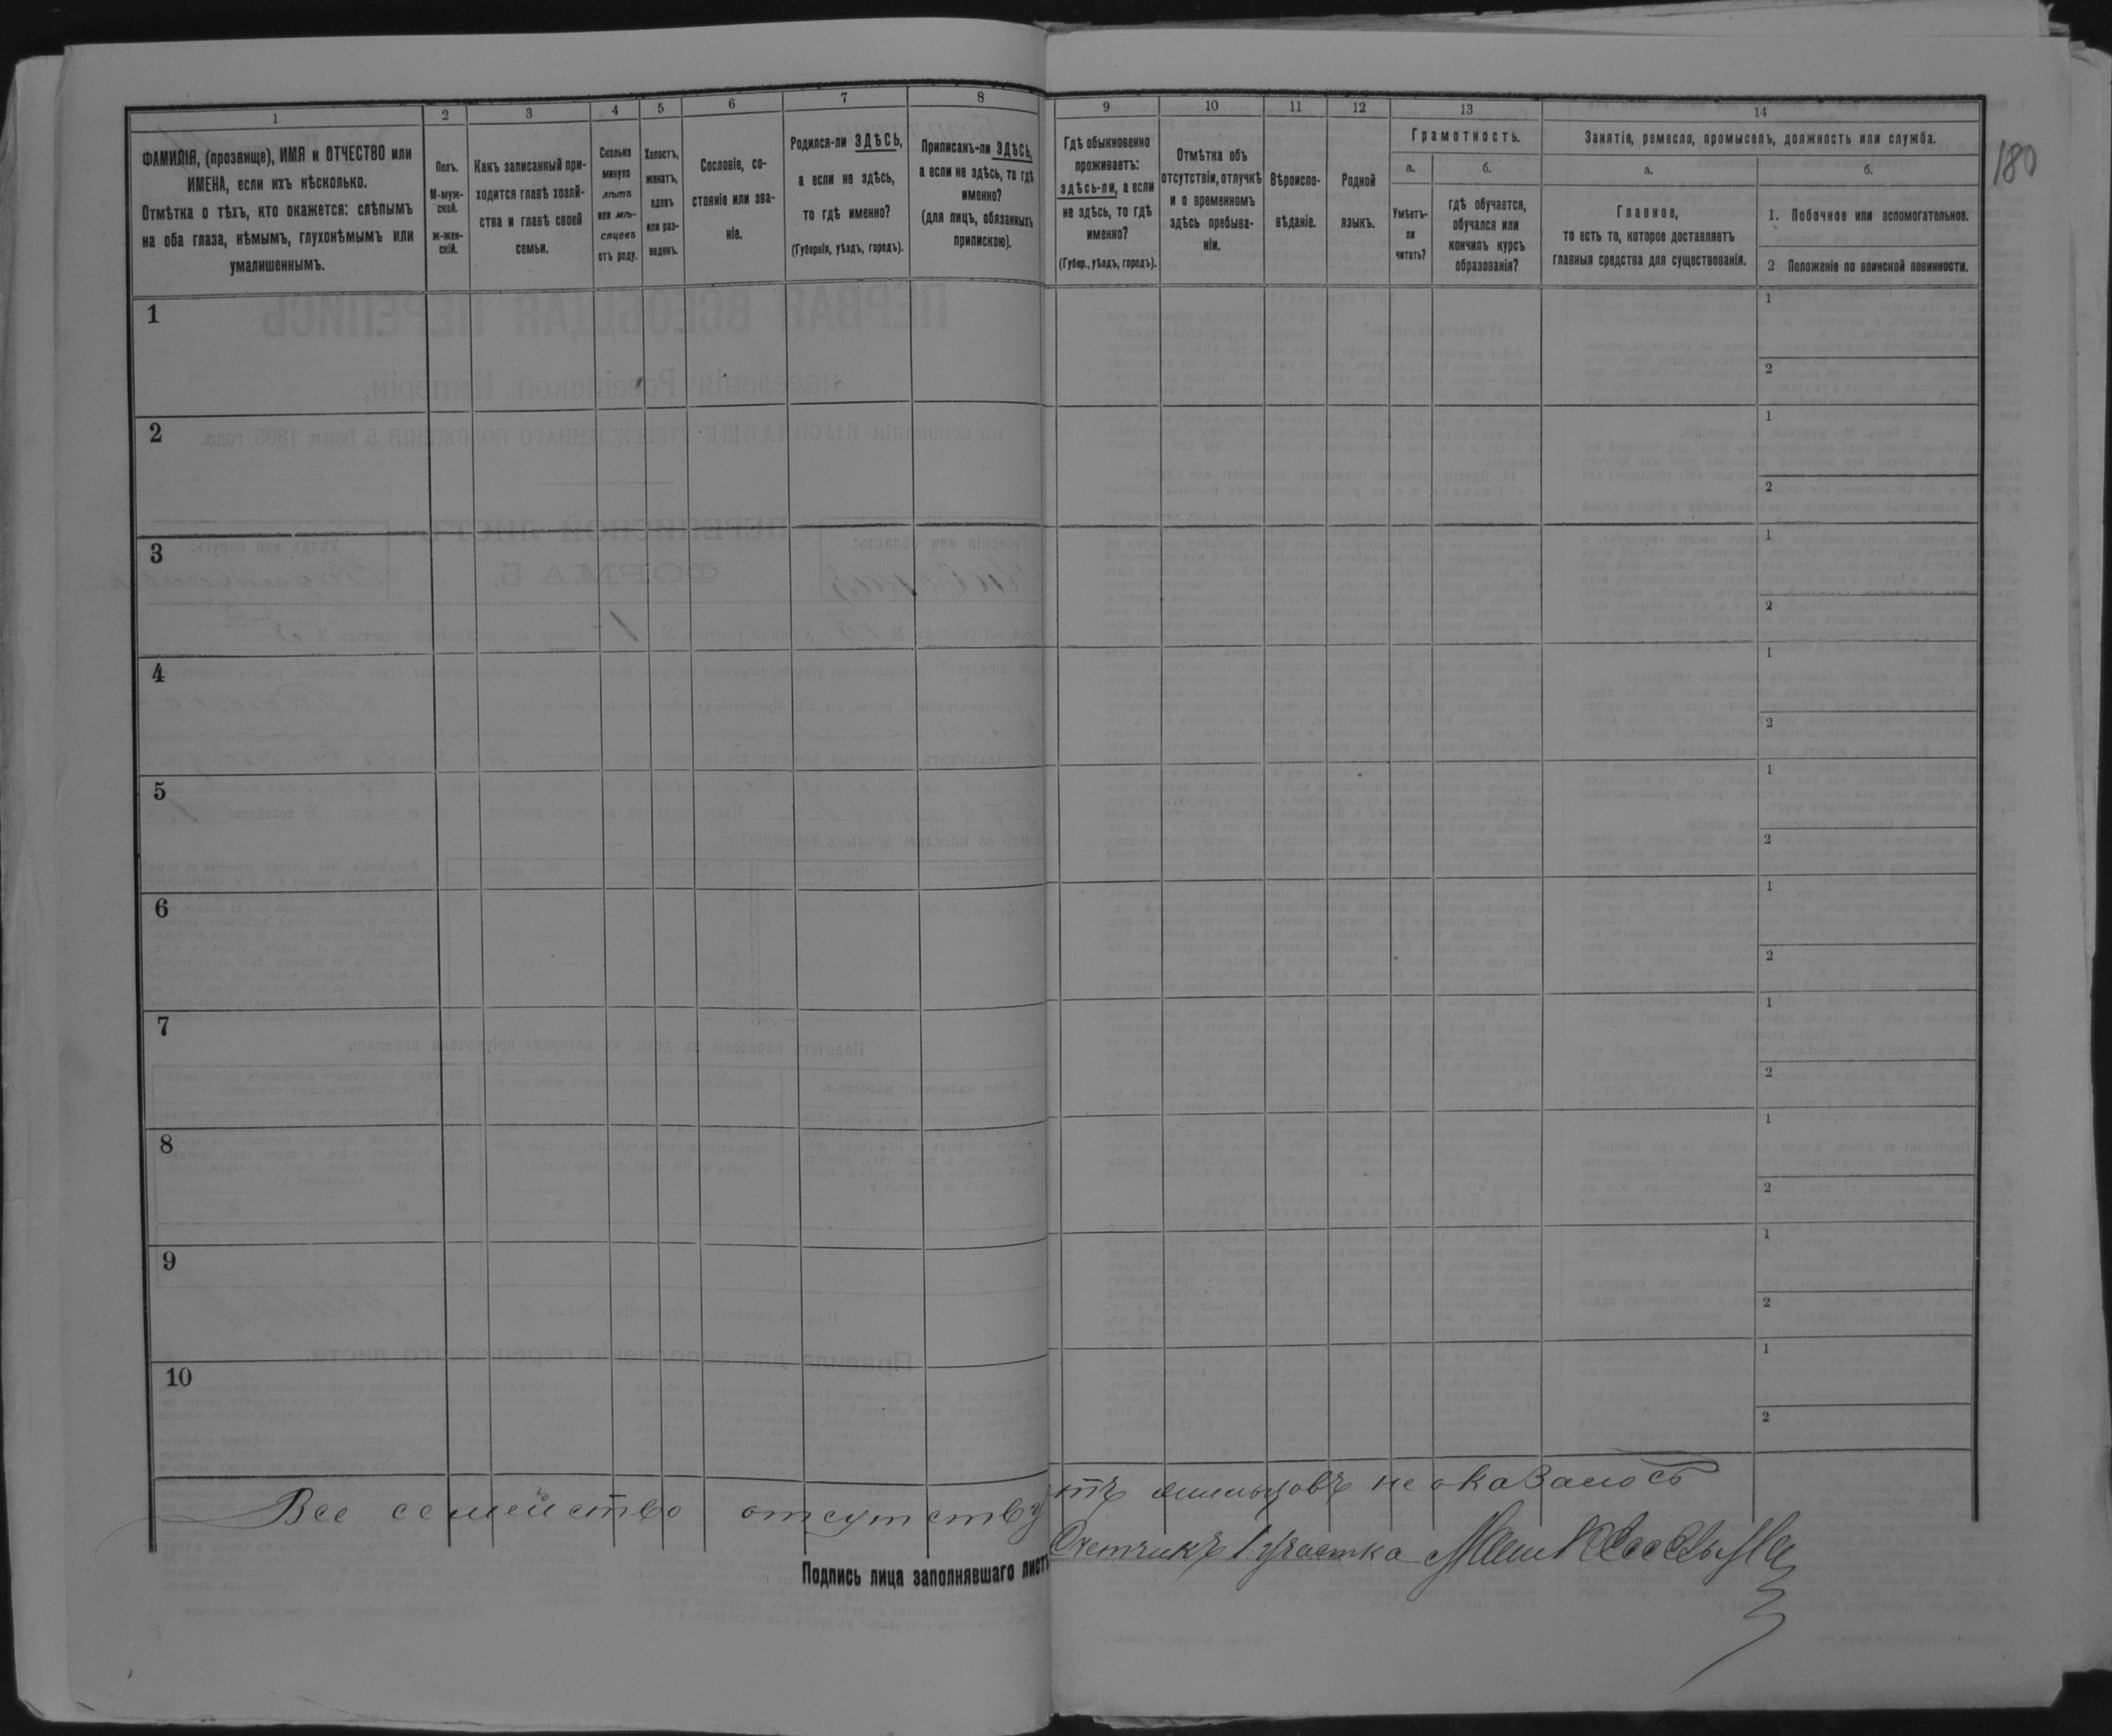 1
2
3
4
5
6
7
8
9
10
11
12
13
14
180
ФАМИЛІЯ, (прозвище), ИМЯ и ОТЧЕСТВО или
ИМЕНА, если ихъ нѣсколько.
Отмѣтка о тѣхъ, кто окажется: слѣпымъ
на оба глаза, нѣмымъ, глухонѣмымъ или
умалишеннымъ.
Полъ.
М-муж-
ской.
Ж-жен-
скій.
Какъ записанный при-
ходится главѣ хозяй-
ства и главѣ своей
семьи.
Сколько
минуло
лѣтъ
или мѣ-
сяцевъ
отъ роду.
Холостъ,
женатъ,
вдовъ
или раз-
веденъ.
Сословіе, со-
стояніе или зва-
ніе.
Родился-ли ЗДѢСЬ,
а если не здѣсь,
то гдѣ именно?
(Губернія, уѣздъ, городъ).
Приписанъ-ли ЗДѢСЬ,
а если не здѣсь, то гдѣ
именно?
(для лицъ, обязанныхъ
припискою).
Гдѣ обыкновенно
проживаетъ:
здѣсь-ли, а если
не здѣсь, то гдѣ
именно?
(Губер., уѣздъ, городъ).
Отмѣтка объ
отсутствіи, отлучкѣ
и о временномъ
здѣсь пребыва-
ніи.
Вѣроиспо-
вѣданіе.
Родной
языкъ.
Грамотность.
а.
Умѣетъ-
ли
читать?
б.
гдѣ обучается,
обучался или
кончилъ курсъ
образованія?
Занятіе, ремесло, промыселъ, должность или служба.
а.
Главное,
то есть то, которое доставляетъ
главныя средства для существованія.
б.
1. Побочное или вспомогательное.
2 Положеніе по воинской повинности.
1
1
2
2
1
2
3
1
2
4
1
2
5
1
2
6
1
2
7
1
2
8
1
2
9
1
2
10
1
2
Все семейство отсутствуетъ жильцовъ не оказалось
Подпись лица заполнявшаго листъ Счетчикъ 1 участка